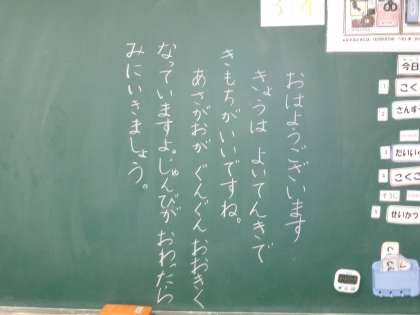 おはようございます
きょうは よいてんきで
きもちがいいですね。
あさがおが ぐんぐん おおきく
なっていますよ。じゅんびが おわったら
みにいきましょう。
3-4
今日
1 こくご
2 さんすう
3 たいいく
4 こくご
5 せいかつ